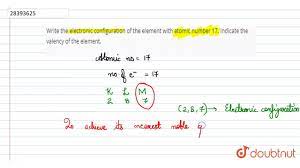 28393625
Write the electronic configuration of the element with atomic number 17. Indicate the
valency of the element.
Atomic no = 17
no. of e⁻ = 17
K L M
2 8 7
(2, 8, 7) → Electronic configuration
To achieve its nearest noble g
doubtnut